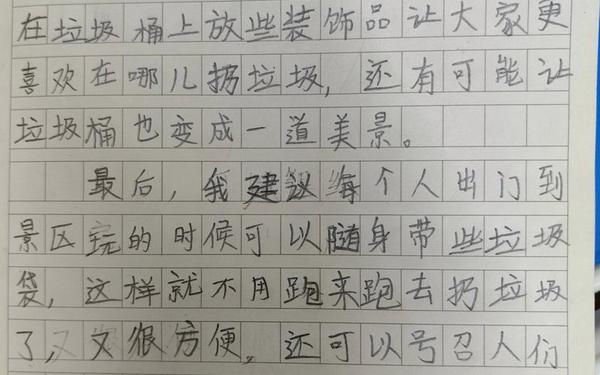 在垃圾桶上放些装饰品让大家更
喜欢在哪儿扔垃圾，还有可能让
垃圾桶也变成一道美景。
最后，我建议每个人出门到
景区玩的时候可以随身带些垃圾
袋，这样就不用跑来跑去扔垃圾
了，又很方便，还可以号召人们